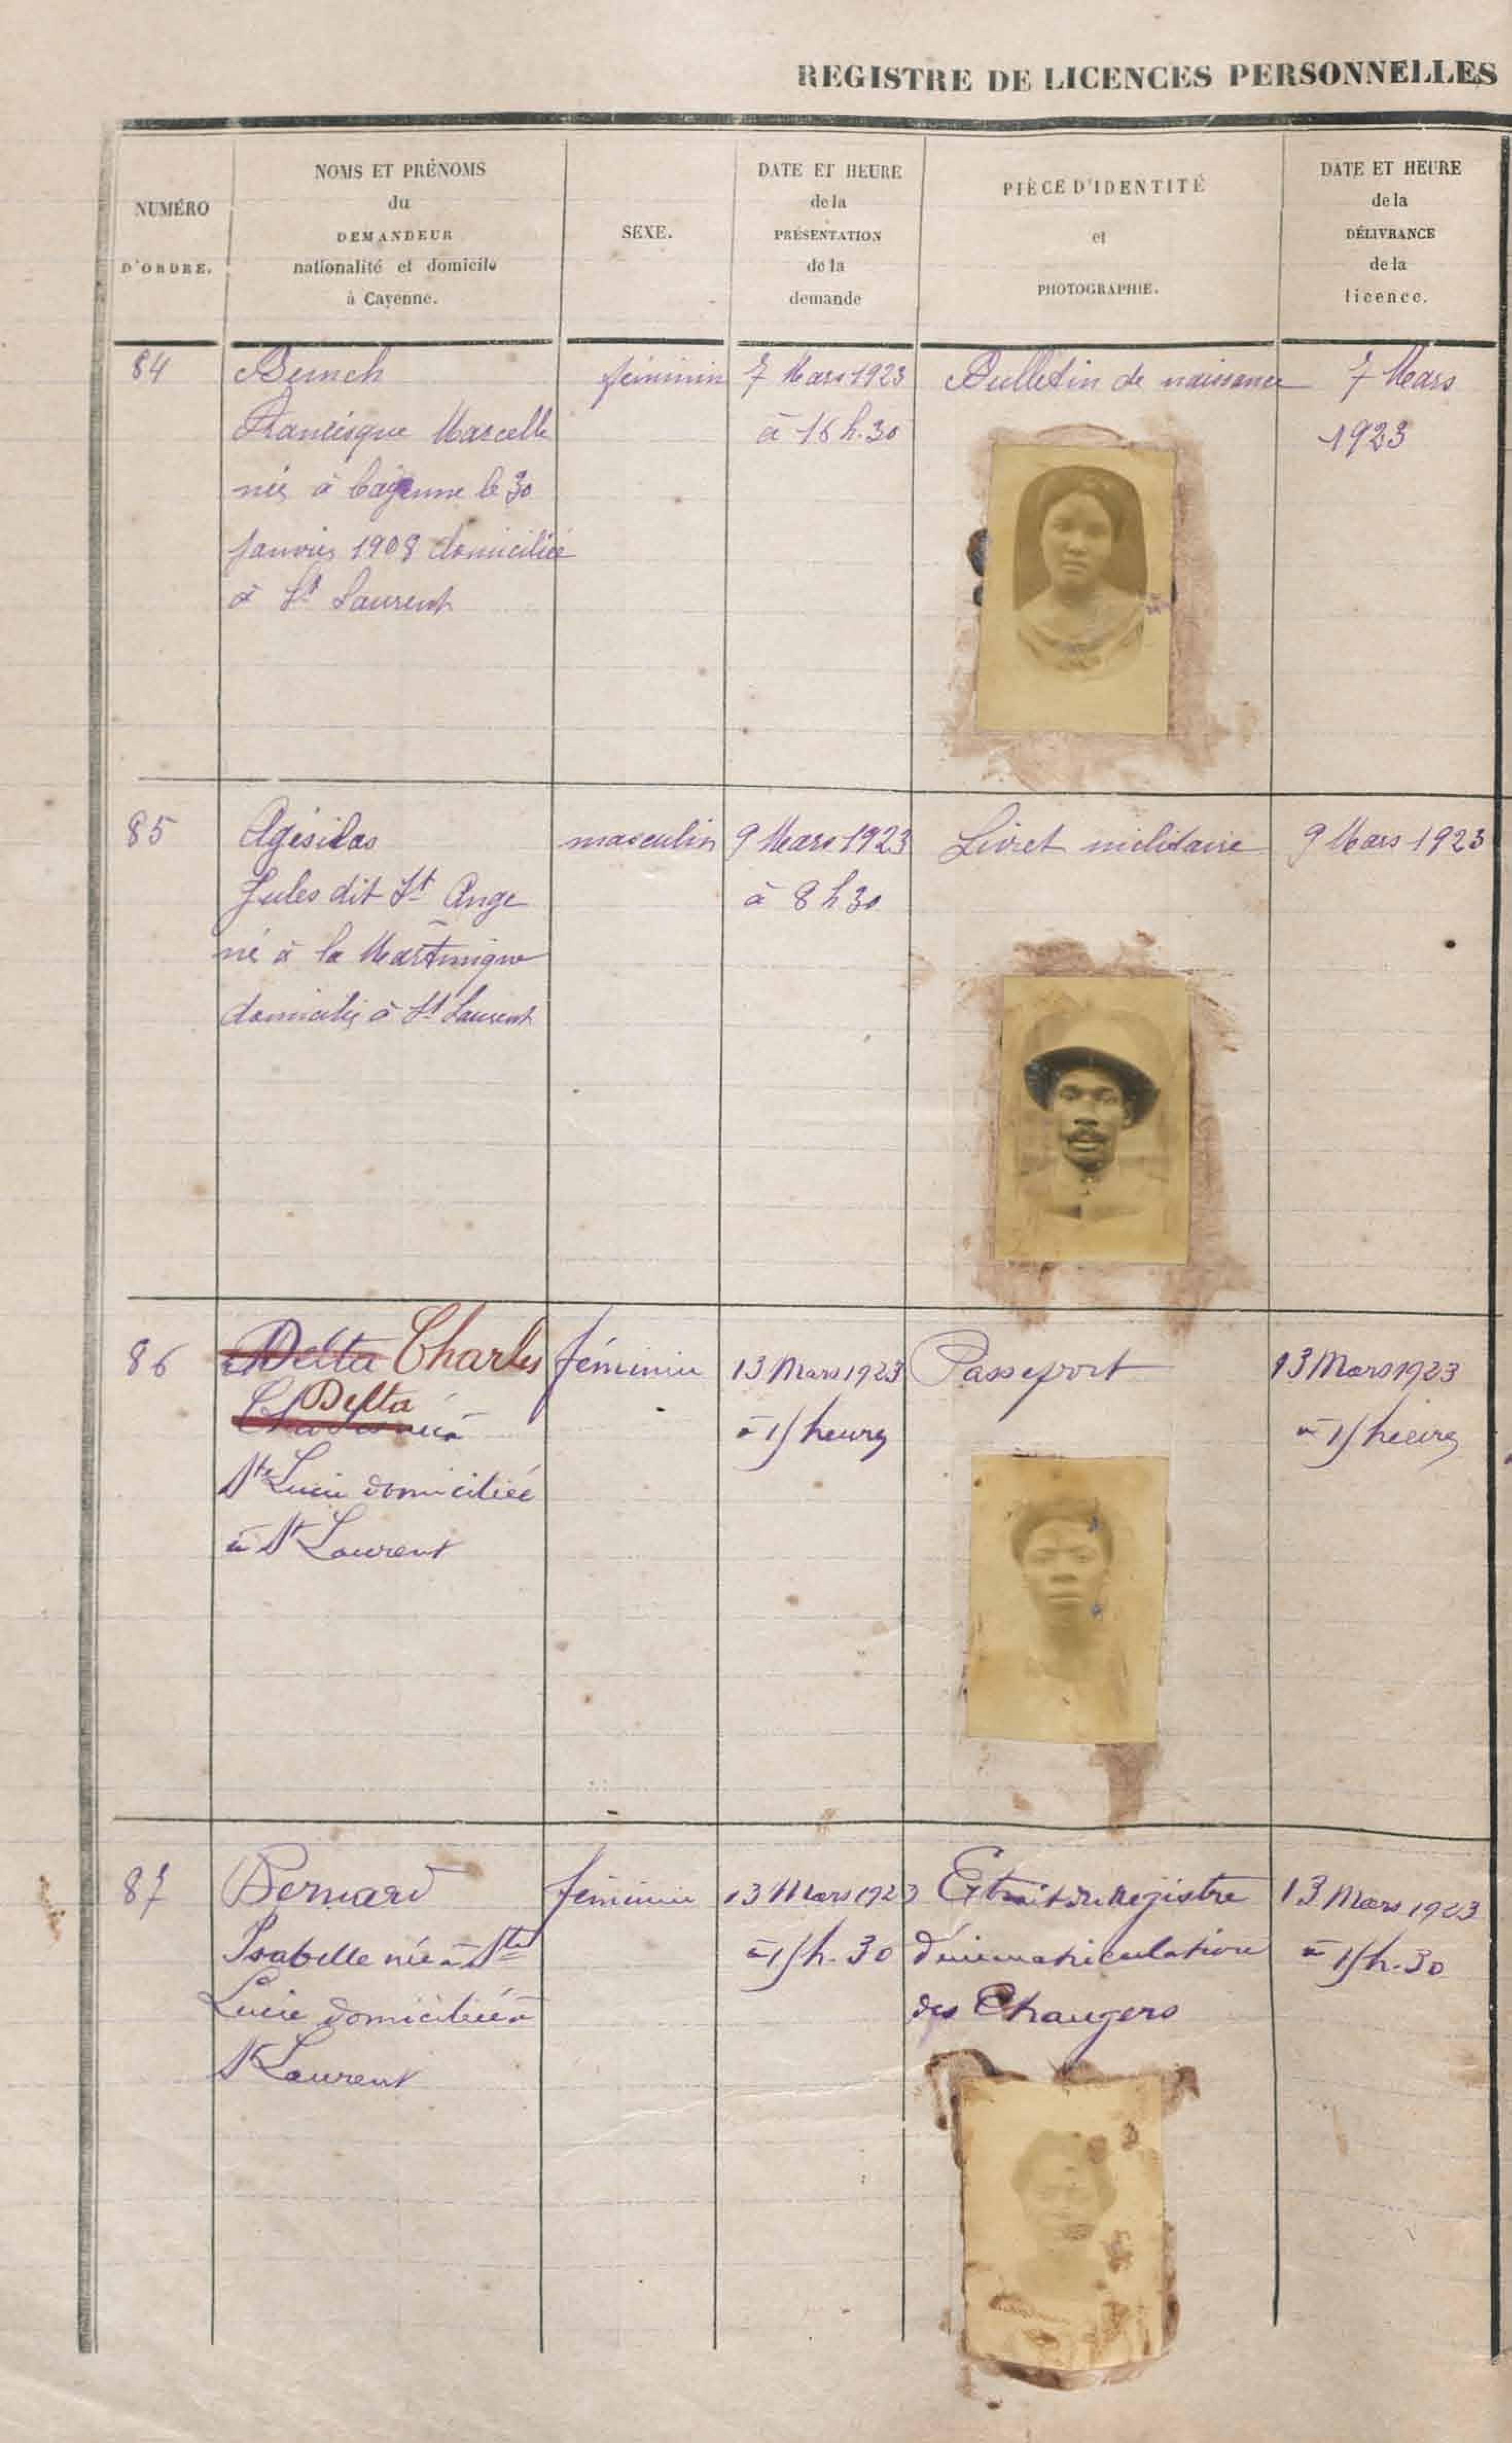 REGISTRE DE LICENCES PERSONNELLES
NUMÉRO
D'ORDRE.
NOMS ET PRÉNOMS
du
DEMANDEUR
nationalité et domicile
à Cayenne.
SEXE.
DATE ET HEURE
de la
PRÉSENTATION
de la
demande
PIÈCE D'IDENTITÉ
et
PHOTOGRAPHIE.
DATE ET HEURE
de la
DÉLIVRANCE
de la
licence.
84
Francisque Marcelle
née à Cayenne le 30
Janvier 1908 domiciliée
à St Laurent
féminin
7 Mars 1923
à 16 h. 30
Bulletin de naissance
7 Mars
1923
85
Agésilas
Jules dit St Ange
né à la Martinique
domicilié à St Laurent
masculin
9 Mars 1923
à 8 h 30
Livret militaire
9 Mars 1923
86
Delta Charles
Delta
Charles née à
Ste Lucie domiciliée
à St Laurent
féminin
13 Mars 1923
à 15 heures
Passeport
13 Mars 1923
à 15 heures
87
Bernard
Isabelle née à Ste
Lucie domiciliée à
St Laurent
féminin
13 Mars 1923
à 15 h. 30
Extrait du Registre
d'immatriculation
des Etrangers
13 Mars 1923
à 15 h. 30